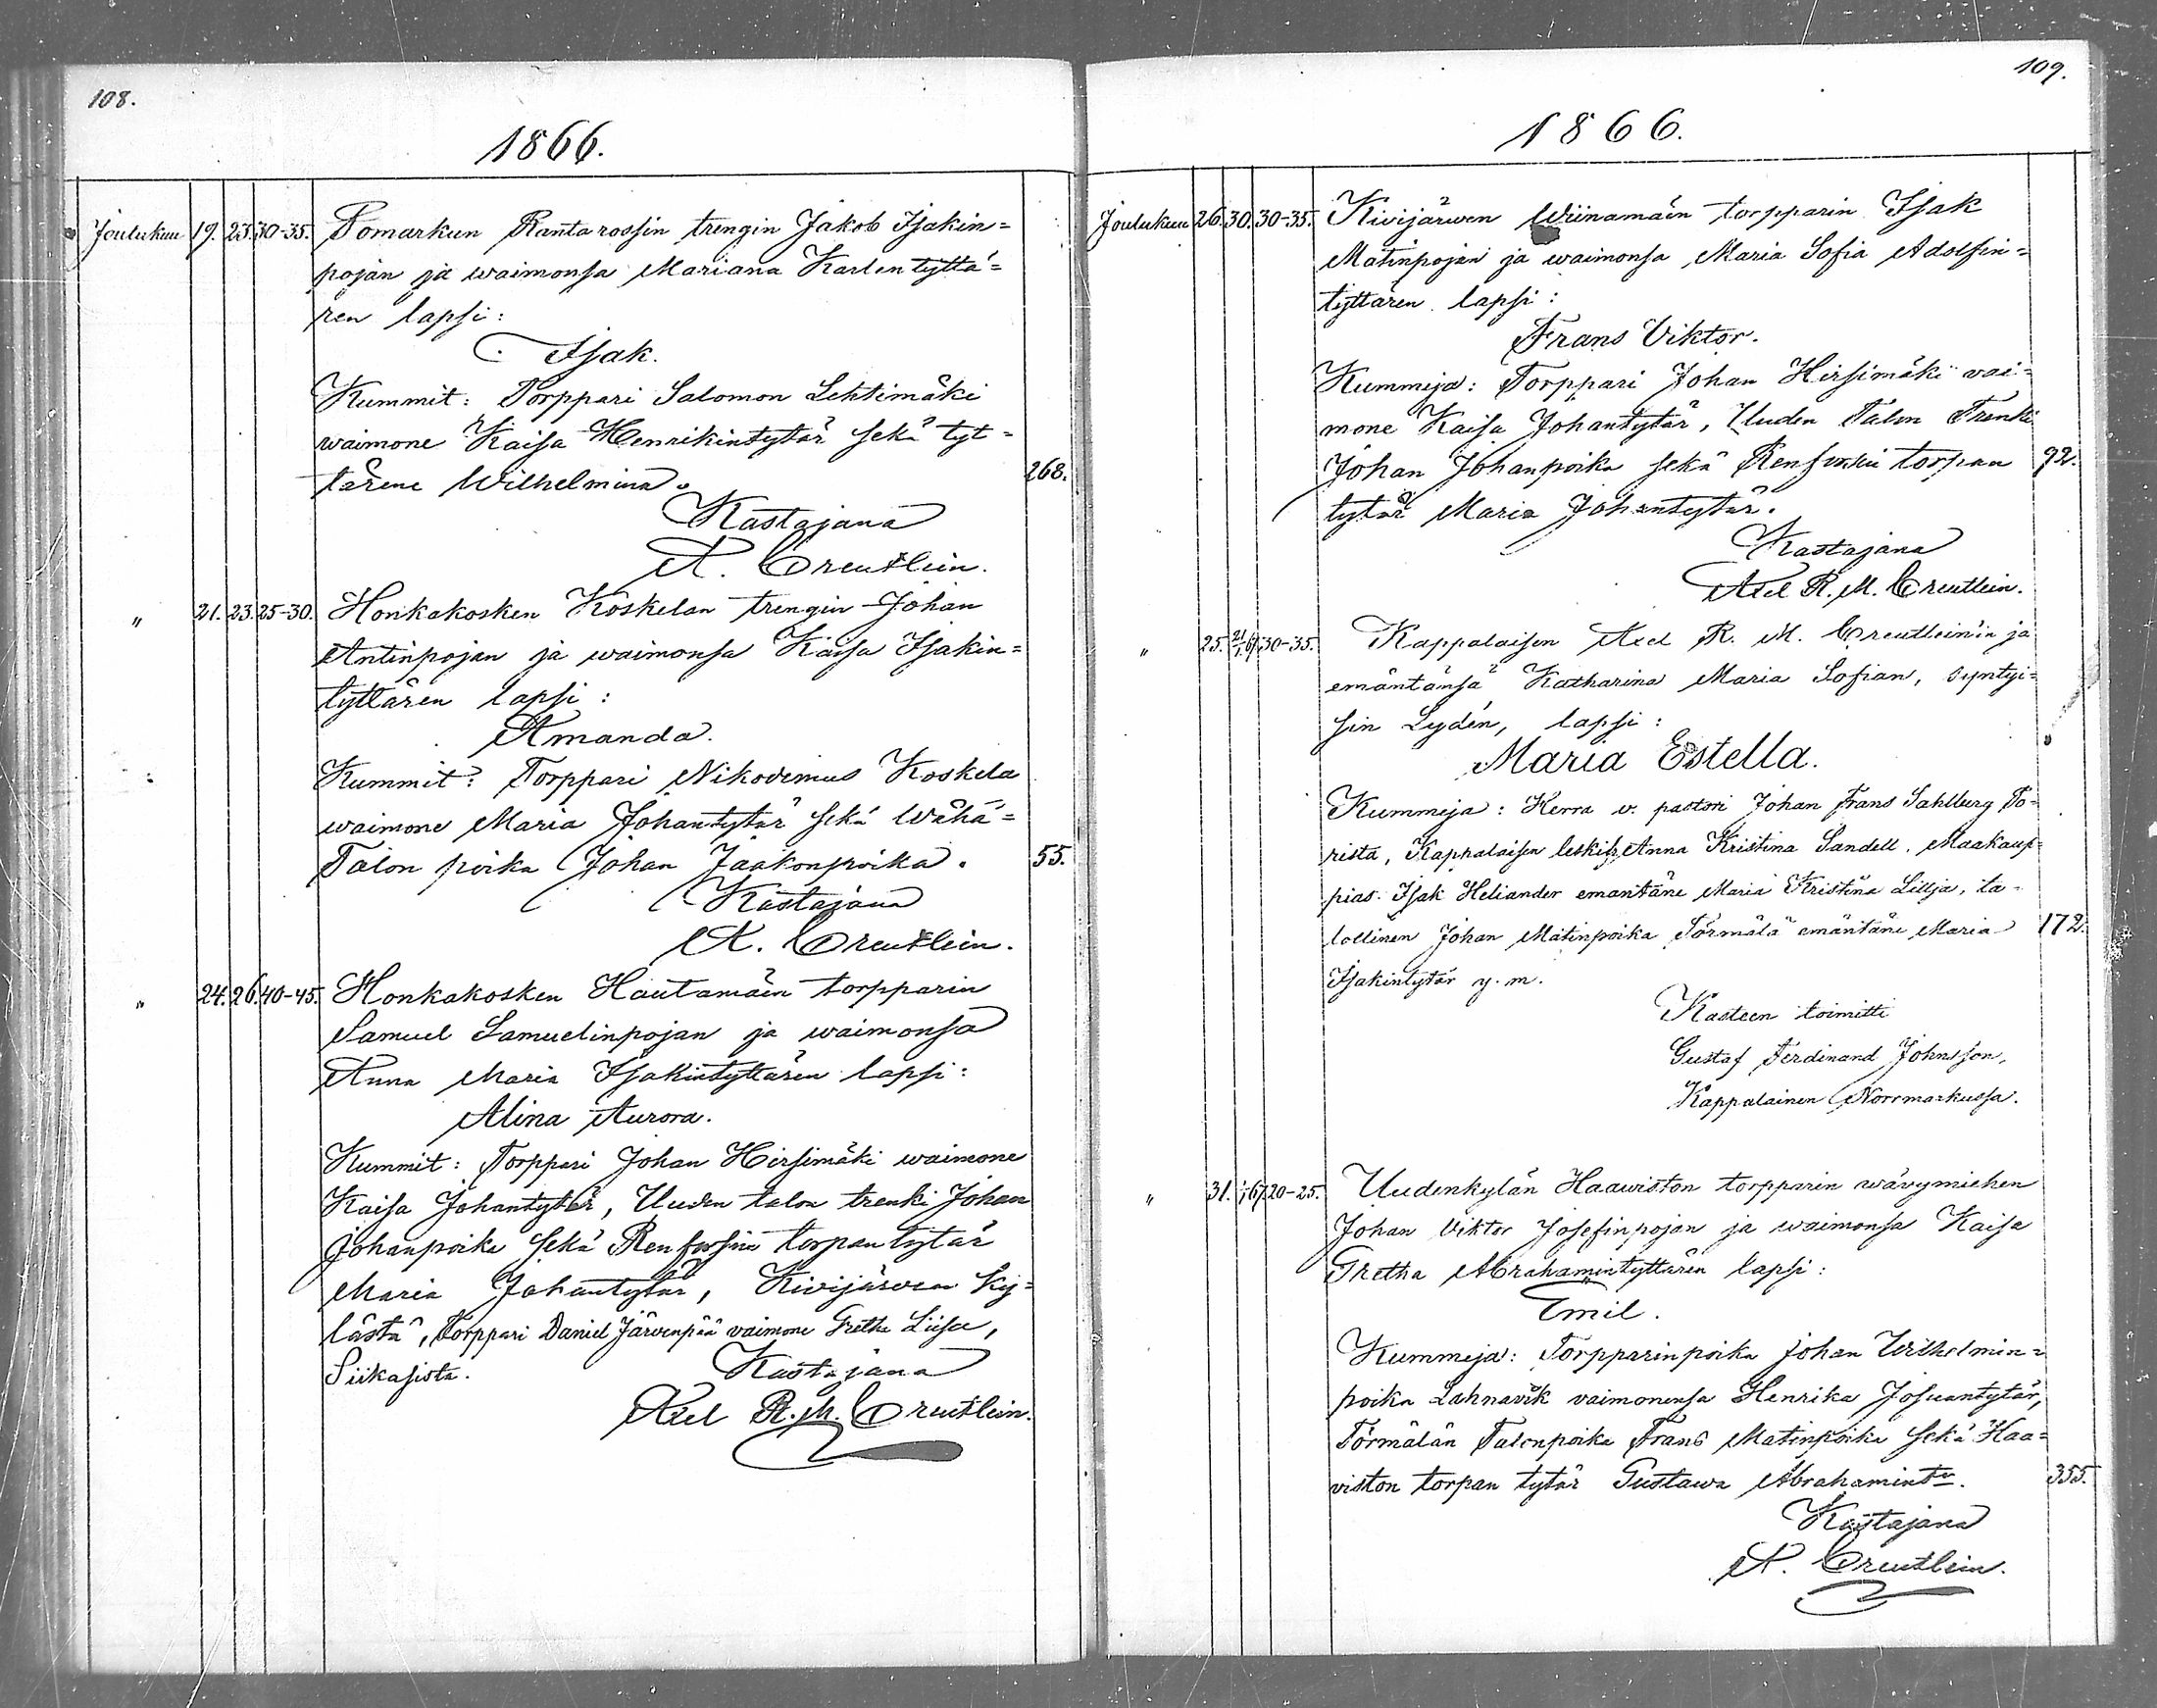 108.
1866.
Joulukuu 19. 23. 30-35. Pomarkun Rantarossin trengin Jakob Isakin=
pojan ja waimonsa Mariana Karlentyttä=
ren lapsi:
Isak.
Kummit: Torppari Salomon Lehtimäki
waimone Kaisa Henrikintytär sekä tyt=
tärene Wilhelmina. 268.
Kastajana
A. Creutlein.
" 21. 23. 25-30. Honkakosken Koskelan trengin Johan
Antinpojan ja waimonsa Kaisa Isakin=
tyttären lapsi:
Amanda.
Kummit: Torppari Nikodemus Koskela
waimone Maria Johantytär sekä Wähä=
Talon poika Johan Jaakonpoika. 55.
Kastajana
A. Creutlein.
" 24. 26. 40-45. Honkakosken Hautamäen torpparin
Samuel Samuelinpojan ja waimonsa
Anna Maria Isakintyttären lapsi:
Alina Aurora.
Kummit: Torppari Johan Hirsimäki waimone
Kaisa Johantytär, Uuden talon trenki Johan
Johanpoika sekä Renforsin torpan tytär
Maria Johantytär, Kivijärven Ky=
lästä, Torppari Daniel Järvenpää vaimone Gretha Liisa,
Siikasista.
Kastajana
Axel R. M. Creutlein.
109.
1866.
Joulukuu 26. 30. 30-35. Kivijärwen Wiinamäen torpparin Isak
Matinpojan ja waimonsa Maria Sofia Adolfin=
tyttären lapsi:
Frans Viktor.
Kummeja: Torppari Johan Hirsimäki vai=
mone Kaisa Johantytär, Uuden Talon Trenki
Johan Johanpoika sekä torpan 92.
tytär Maria Johantytär.
Kastajana
Axel R. M. Creutlein.
" 25. 21/1 67. 30-35. Kappalaisen Axel R. M. Creutlein'in ja
emäntänsä Katharina Maria Sofian, syntyi=
sin Lydén, lapsi:
Maria Estella.
Kummeja: Herra v. pastori Johan Frans Sahlberg Po=
rista, Kappalaisen leski Anna Kristina Sandell, Maakaup=
pias Isak Heliander emäntäne Maria Kristina Lillja, ta=
lollinen Johan Matinpoika Törmälä emäntäne Maria 172.
Isakintytär y. m.
Kasteen toimitti
Gustaf Ferdinand Johnsson,
Kappalainen Norrmarkussa.
" 31. 1/1 67. 20-25. Uudenkylän Haawiston torpparin wävymiehen
Johan Viktor Josefinpojan ja waimonsa Kaisa
Gretha Abrahamintyttären lapsi:
Emil.
Kummeja: Torpparinpoika Johan Wilhelmin=
poika Lahnavik vaimonensa Henrika Josuantytär,
Törmälän Talonpoika Frans Matinpoika sekä Haa=
viston torpan tytär Gustawa Abrahamintr. 355.
Kastajana
A. Creutlein.